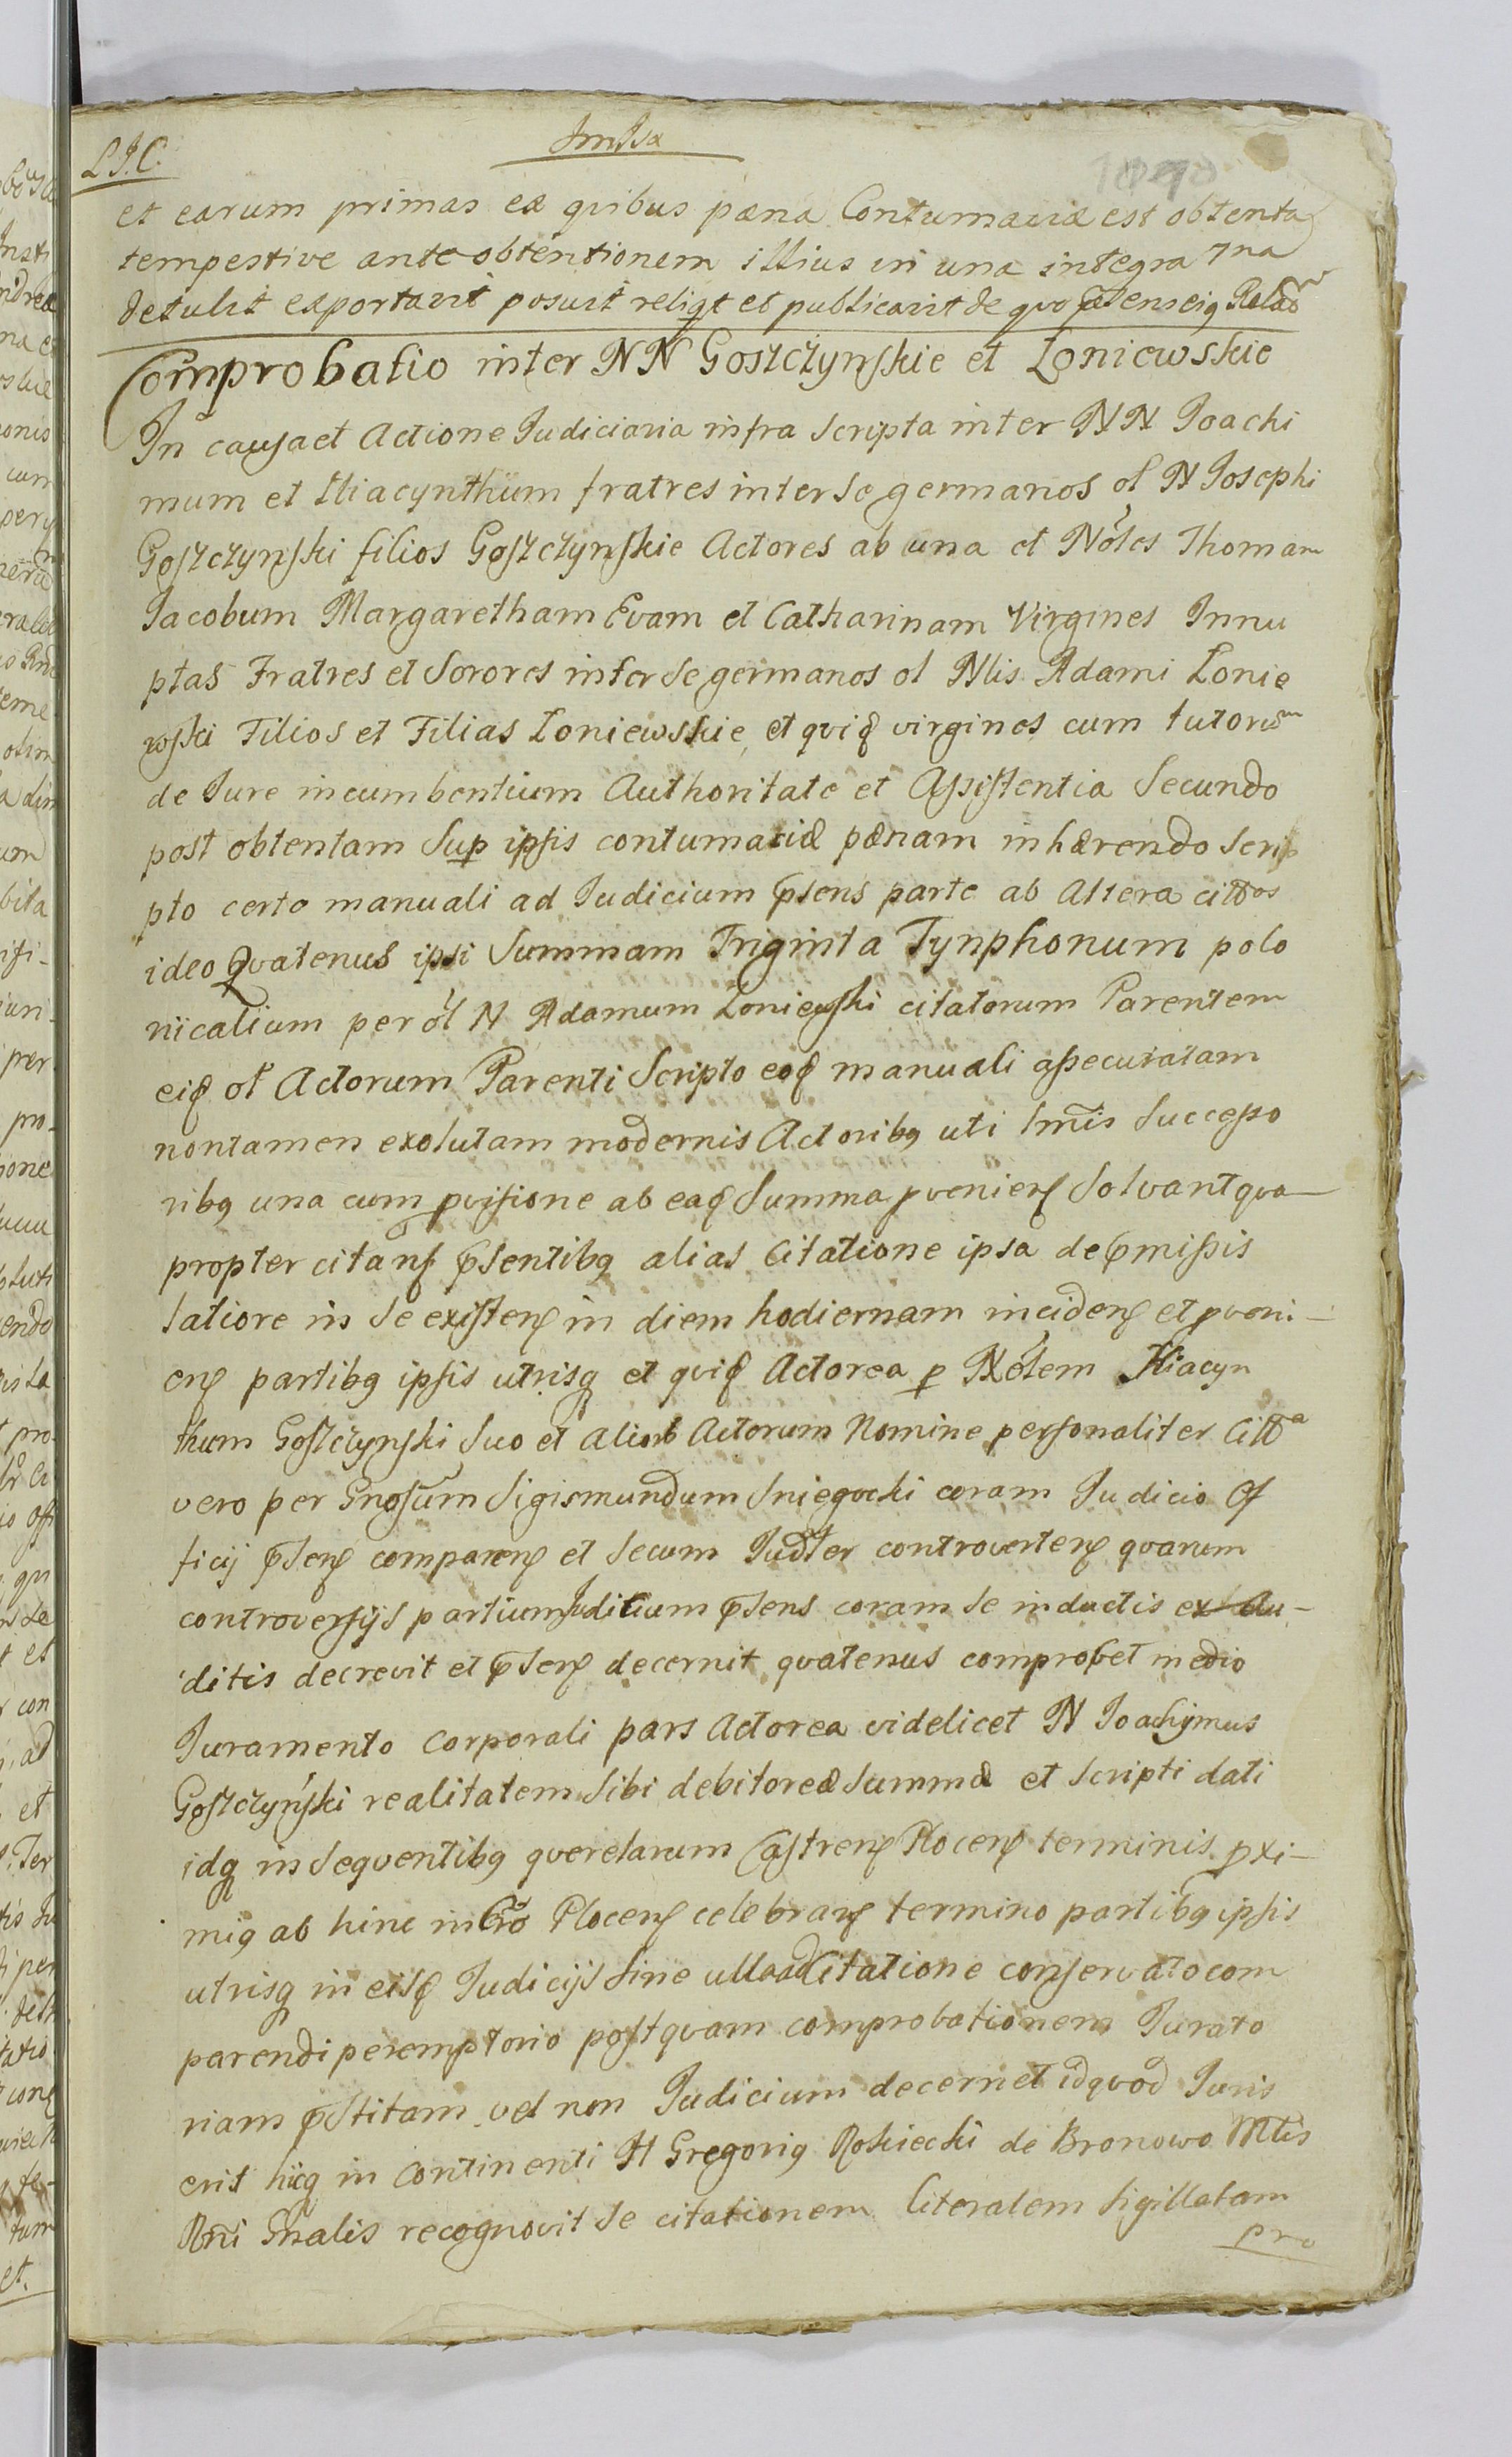 L.J.C.
et earum primas ex qvibus pœna Contumaciæ est obtenta
tempestive ante obtentionem illius in una integra 7na
detulit exportavit posuit reliqt et publicavit de qvo
Comprobatio inter NN Goszczynskie et Loniewskie
In causa et Actione Judiciaria infra Scripta inter NN Joachi
mum et Hiacynthum fratres inter Se germanos ol N Josephi
Goszczynski filios Goszczynskie Actores ab una et Nôles Thomam
Jacobum Margaretham Evam et Catharinam Virgines Innu
ptas Fratres et Sorores inter Se germanos ol Nlis Adami Lonie
wski Filios et Filias Loniewskie et qviđ virgines cum tutorum
de Jure incumbentium Authoritate et Assistentia Secundo
post obtentam Sup ipsis contumaciæ pœnam inhærendo Scrip
pto certo manuali ad Judicium pſens parte ab Altera cittos
ideo Qvatenus ipsi Summam Triginta Tynphonum polo
nicalium per ol N Adamum Loniewski citatorum Parentem
eiđ ol Actorum Parenti Scripto eođ manuali assecuratam
non tamen exolutam modernis Actoribq uti Successo
ribq una cum pvisione ab eađ Summa pvenienſ Solvant qva
propter citanſ pſentibq alias Citatione ipsa de pmissis
latiore in Se existenſ in diem hodiernam incidenſ et pveni-
enſ partibq ipsis utrisq et qviđ Actorea p Nôlem Hiacyn
thum Goszczynski Suo et aliorum Actorum Nomine personaliter Citta
vero per Gnosum Sigismundum Sniegocki coram Judicio Of
ficij pſenſ comparenſ et Secum Judter controvertenſ qvarum
controversijs partium Judicium pſens coram Se inductis ex Au-
ditis decrevit et pſenſ decernit qvatenus comprobet medio
Juramento Corporali pars Actorea videlicet N Joachymus
Goszczyński realitatem Sibi debitoreæ Summæ et Scripti dati
idq in Seqventibq qverelarum Castrenſ Plocenſ terminis pxi-
miq ab hinc in Cro Plocenſ celebranſ termino partibq ipsis
utrisq in eisđ Judicijs Sine ulla adCitatione conservato com
parendi peremptorio postqvam comprobationem Jurato
riam pStitam vel non Judicium decernet idqvod Juris
erit hicq in Continenti H Gregoriq Rokiecki de Bronowo Mtis
Rni Gnalis recognovit Se citationem literalem Sigillatam
pro